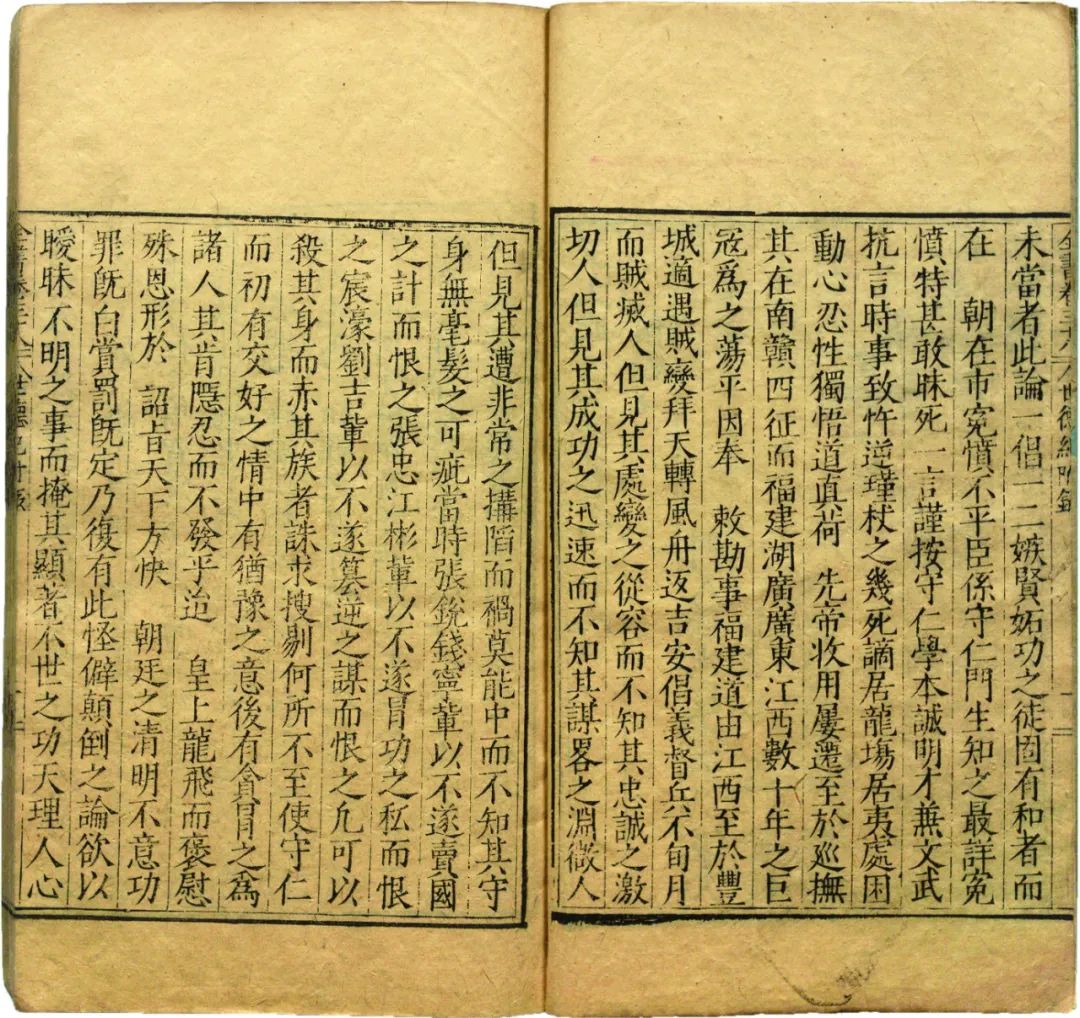 全書卷三十八 世德紀附錄
未當者此論一倡一二嫉賢妬功之徒固有和者而
在 朝在市冤憤不平臣係守仁門生知之最詳冤
憤特甚敢昧死一言謹按守仁學本誠明才兼文武
抗言時事致忤逆瑾杖之幾死謫居龍塲居夷處困
動心忍性獨悟道真荷 先帝收用屢遷至於巡撫
其在南贛四征而福建湖廣廣東江西數十年之巨
寇爲之蕩平因奉 敕勘事福建道由江西至於豐
城適遇賊變拜天轉風舟返吉安倡義督兵不旬月
而賊滅人但見其處變之從容而不知其忠誠之激
切人但見其成功之迅速而不知其謀畧之淵微人
但見其遭非常之搆陷而禍莫能中而不知其守
身無毫髮之可疵當時張銳錢寧輩以不遂賣國
之計而恨之張忠江彬輩以不遂冒功之私而恨
之宸濠劉吉輩以不遂簒逆之謀而恨之凡可以
殺其身而赤其族者誅求搜剔何所不至使守仁
而初有交好之情中有猶豫之意後有貪冒之爲
諸人其肯隱忍而不發乎迨 皇上龍飛而褒慰
殊恩形於 詔旨天下方快 朝廷之清明不意功
罪旣白賞罰旣定乃復有此怪僻顛倒之論欲以
曖昧不明之事而掩其顯著不世之功天理人心